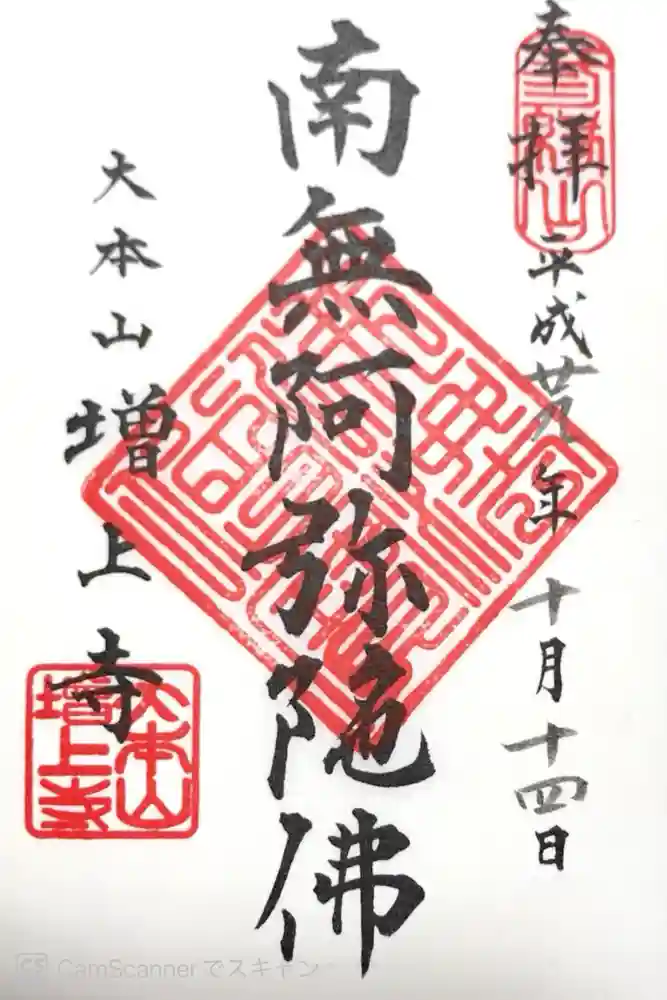 奉拝
平成廿九年十月十四日
南無阿弥陀佛
大本山増上寺
大本山
増上寺
CS CamScannerでスキャン